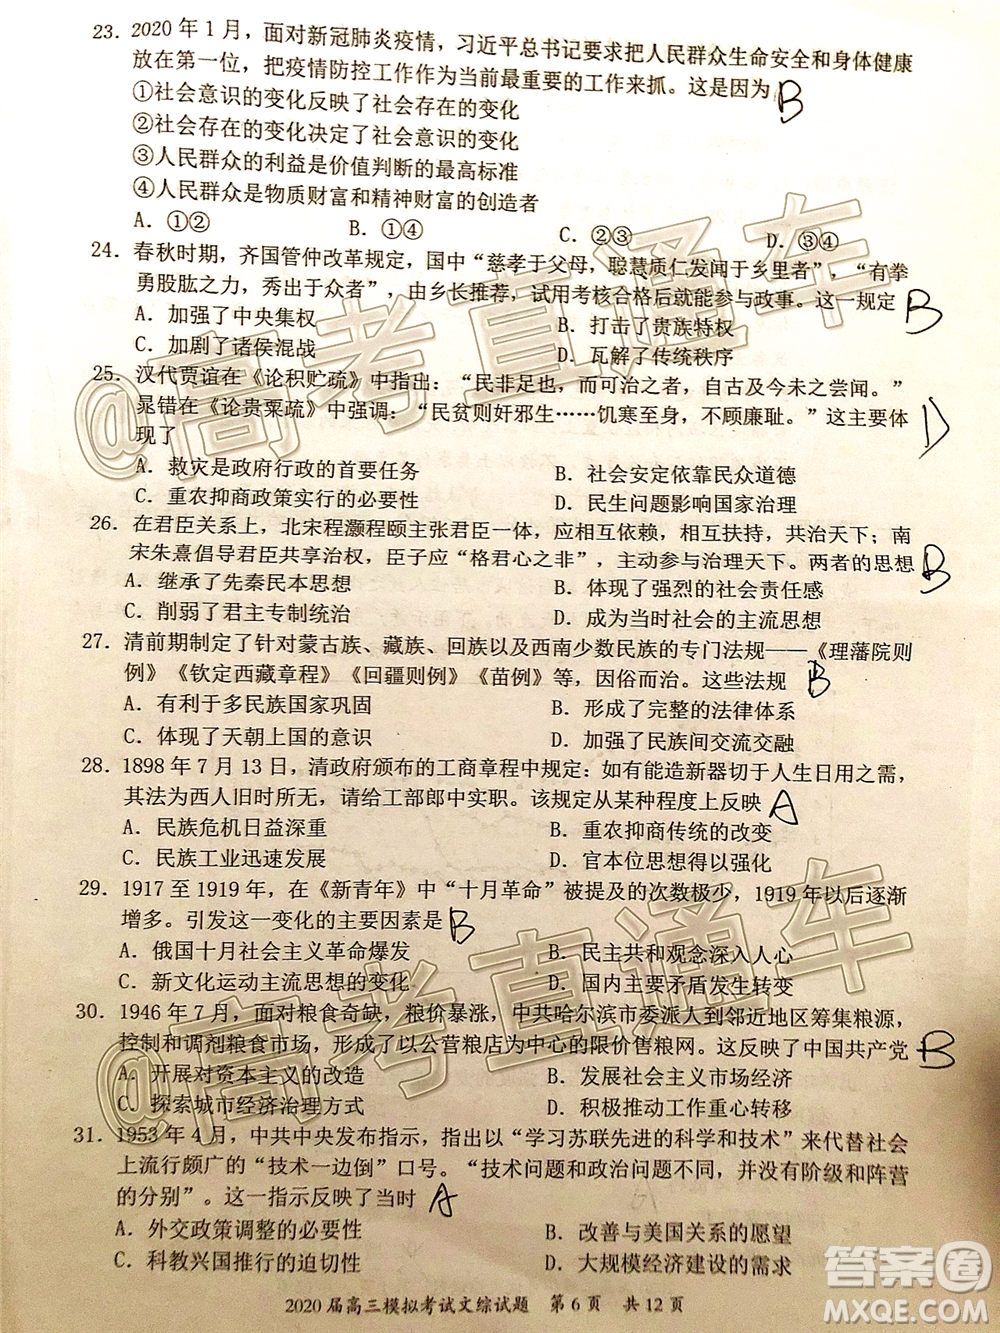 23. 2020 年 1 月，面对新冠肺炎疫情，习近平总书记要求把人民群众生命安全和身体健康
放在第一位，把疫情防控工作作为当前最重要的工作来抓。这是因为 B
①社会意识的变化反映了社会存在的变化
②社会存在的变化决定了社会意识的变化
③人民群众的利益是价值判断的最高标准
④人民群众是物质财富和精神财富的创造者
A. ①② B. ①④ C. ②③ D. ③④
24. 春秋时期，齐国管仲改革规定，“慈孝于父母，聪慧质仁发闻于乡里者”，“有拳
勇股肱之力，秀出于众者”，由乡长推荐，试用考核合格后就能参与政事。这一规定 B
A. 加强了中央集权 B. 打击了贵族特权
C. 加剧了诸侯混战 D. 瓦解了传统秩序
25. 汉代贾谊在《论积贮疏》中指出：“民非足也，而可治之者，自古及今未之尝闻。”
晁错在《论贵粟疏》中强调：“民贫则奸邪生……饥寒至身，不顾廉耻。”这主要体
现了 D
A. 救灾是政府行政的首要任务 B. 社会安定依靠民众道德
C. 重农抑商政策实行的必要性 D. 民生问题影响国家治理
26. 在君臣关系上，北宋程灏程颐主张君臣一体，应相互依赖，相互扶持，共治天下；南
宋朱熹倡导君臣共享治权，臣子应“格君心之非”，主动参与治理天下。两者的思想 B
A. 继承了先秦民本思想 B. 体现了强烈的社会责任感
C. 削弱了君主专制统治 D. 成为当时社会的主流思想
27. 清前期制定了针对蒙古族、藏族、回族以及西南少数民族的专门法规——《理藩院则
例》《钦定西藏章程》《回疆则例》《苗例》等，因俗而治。这些法规 B
A. 有利于多民族国家巩固 B. 形成了完整的法律体系
C. 体现了天朝上国的意识 D. 实现了民族间交流交融
28. 1898 年 7 月 13 日，清政府颁布的工商章程中规定：如有能造新器切于人生日用之需，
其法为西人旧时所无，请给工部郎中实职。该规定从某种程度上反映 A
A. 民族危机日益深重 B. 重农抑商传统的改变
C. 民族工业迅速发展 D. 官本位思想影响深刻
29. 1917 至 1919 年，在《新青年》中“十月革命”被提及的次数极少，1919 年以后逐渐
增多。引发这一变化的主要因素是 B
A. 俄国十月社会主义革命爆发 B. 民主共和观念深入人心
C. 新文化运动主流思想的变化 D. 国内主要矛盾发生转变
30. 1946 年 7 月，面对粮食奇缺，粮价暴涨，中共哈尔滨市委派人到邻近地区筹集粮源，
控制和调剂粮食市场，组成了以公营粮店为中心的限价售粮网。这反映了中国共产党 B
A. 开展对资本主义的改造 B. 发展社会主义市场经济
C. 探索城市经济治理方式 D. 积极推动工作重心转移
31. 1953 年 4 月，中共中央发布指示，指出以“学习苏联先进的科学和技术”来代替社会
上流行颇广的“技术一边倒”口号。“技术问题和政治问题不同，并没有阶级和阵营
的分别”。这一指示反映了当时 A
A. 外交政策调整的必要性 B. 改善与美国关系的愿望
C. 科教兴国推行的迫切性 D. 大规模经济建设的需求
2020 届高三模拟考试文综试题 第 6 页 共 12 页
@高考直通车
@高考直通车
答案圈
MXQE.COM